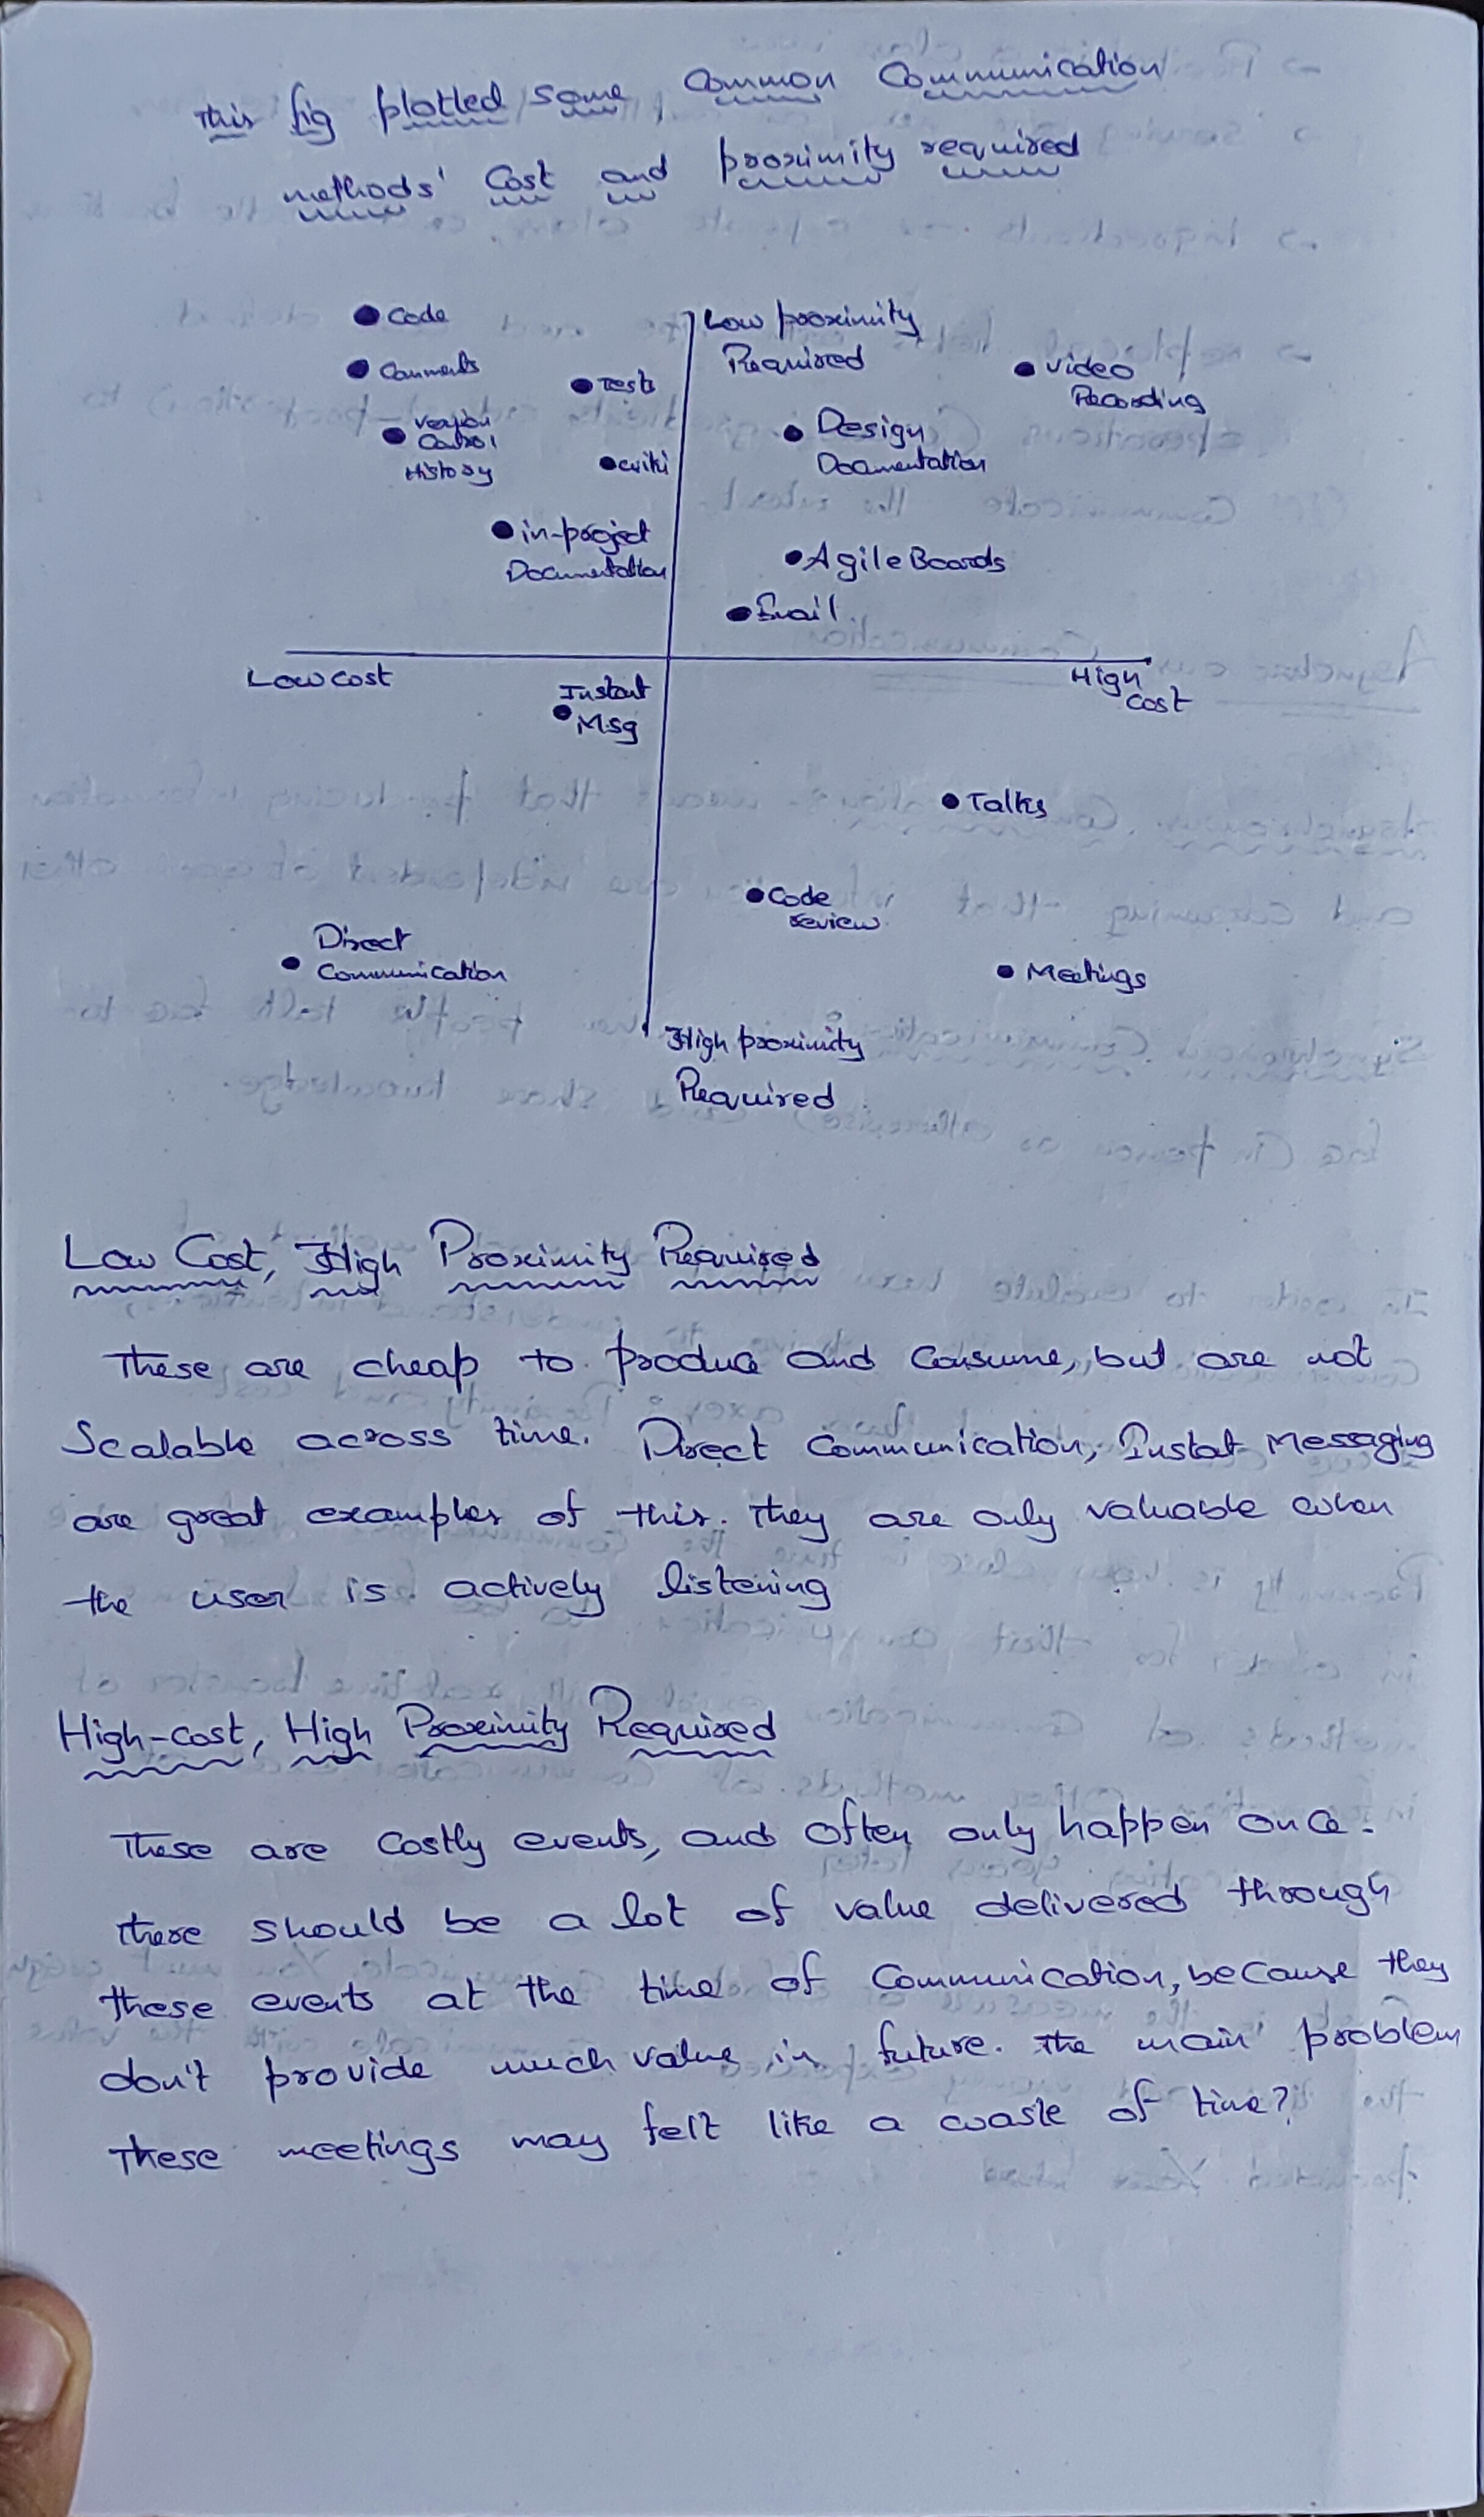 This fig plotted some Common Communication
methods' Cost and proximity required
Code
Low proximity
Required
Comments
Tests
Video
Recording
Version
Control
History
Wiki
Design
Documentation
in-project
Documentation
Agile Boards
Email
Low cost
High
Cost
Instant
Msg
Talks
Code
review
Direct
Communication
Meetings
High proximity
Required
Low Cost, High Proximity Required
These are cheap to produce and Consume, but are not
Scalable across time. Direct Communication, Instat Messaging
are great examples of this. They are only valuable when
the user is actively listening
High-cost, High Proximity Required
These are Costly events, and often only happen once.
There should be a lot of value delivered through
these events at the time of Communication, because they
don't provide much value in future. The main problem
These meetings may felt like a waste of time?